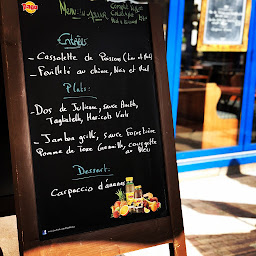 Pago
Menu du Jour
Entrées
- Cassolette de Poisson (Lou et Noix)
- Feuilleté au chèvre, Noix et Miel
Plats:
- Dos de Julienne, Sauce Aneth,
Tagliatelle, Haricots Verts
- Jambon grillé, Sauce Forestière
Pomme de Terre Grenaille, courgette
au Bleu
Dessert:
Carpaccio d'ananas